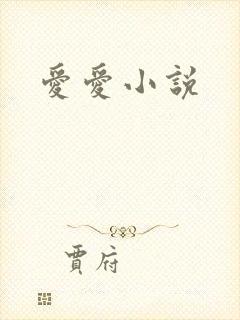 愛愛小說
賈府